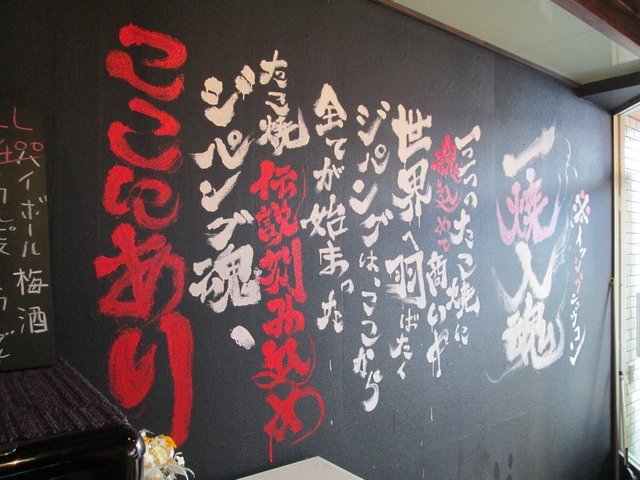 一焼入魂
一つ一つのたこ焼に
魂込めて商いや
世界へ羽ばたく
ジパングは、ここから
全てが始まった
たこ焼伝説刻み込め
ジパング魂、
ここにあり
梅酒
ハイボール